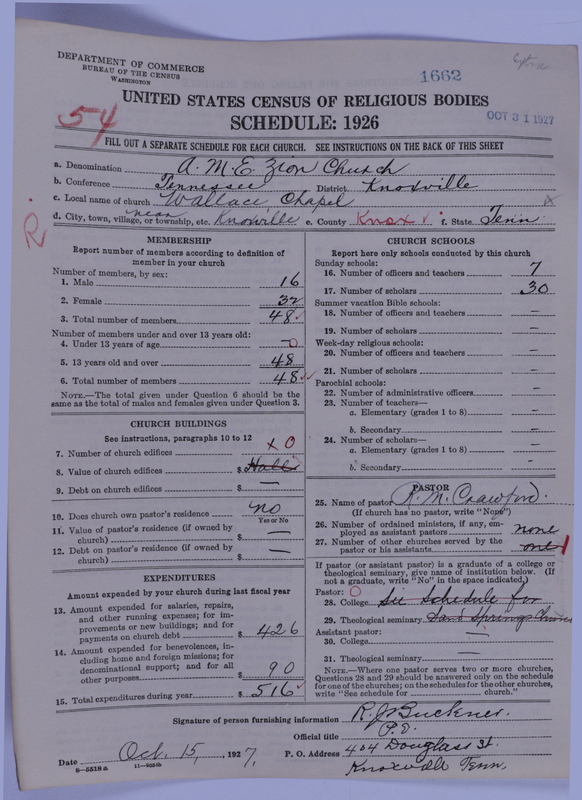 DEPARTMENT OF COMMERCE
BUREAU OF THE CENSUS
WASHINGTON
1662
UNITED STATES CENSUS OF RELIGIOUS BODIES
SCHEDULE: 1926
OCT 31 1927
54
FILL OUT A SEPARATE SCHEDULE FOR EACH CHURCH. SEE INSTRUCTIONS ON THE BACK OF THIS SHEET
a. Denomination A. M. E. Zion Church
b. Conference Tennessee District Knoxville
c. Local name of church Wallace Chapel
d. City, town, village, or township, etc. near Knoxville e. County Knox f. State Tenn
R.
MEMBERSHIP
Report number of members according to definition of member in your church
Number of members, by sex:
1. Male 16
2. Female 32
3. Total number of members 48
Number of members under and over 13 years old:
4. Under 13 years of age 0
5. 13 years old and over 48
6. Total number of members 48
NOTE.—The total given under Question 6 should be the same as the total of males and females given under Question 3.
CHURCH BUILDINGS
See instructions, paragraphs 10 to 12
7. Number of church edifices x 0
8. Value of church edifices $ Hall
9. Debt on church edifices $ —
10. Does church own pastor's residence No
Yes or No
11. Value of pastor's residence (if owned by church) $ —
12. Debt on pastor's residence (if owned by church) $ —
EXPENDITURES
Amount expended by your church during last fiscal year
13. Amount expended for salaries, repairs, and other running expenses; for improvements or new buildings; and for payments on church debt $ 426
14. Amount expended for benevolences, including home and foreign missions; for denominational support; and for all other purposes $ 90
15. Total expenditures during year $ 516
CHURCH SCHOOLS
Report here only schools conducted by this church
Sunday schools:
16. Number of officers and teachers 7
17. Number of scholars 30
Summer vacation Bible schools:
18. Number of officers and teachers —
19. Number of scholars —
Week-day religious schools:
20. Number of officers and teachers —
21. Number of scholars —
Parochial schools:
22. Number of administrative officers —
23. Number of teachers—
a. Elementary (grades 1 to 8) —
b. Secondary —
24. Number of scholars—
a. Elementary (grades 1 to 8) —
b. Secondary —
PASTOR
25. Name of pastor R. M. Crawford.
(If church has no pastor, write "None")
26. Number of ordained ministers, if any, employed as assistant pastors none
27. Number of other churches served by the pastor or his assistants one 1
If pastor (or assistant pastor) is a graduate of a college or theological seminary, give name of institution below. (If not a graduate, write "No" in the space indicated.)
Pastor: O
28. College See Schedule for
29. Theological seminary Sand Springs Church
Assistant pastor:
30. College —
31. Theological seminary —
NOTE.—Where one pastor serves two or more churches, Questions 28 and 29 should be answered only on the schedule for one of the churches; on the schedules for the other churches, write "See schedule for church."
Signature of person furnishing information R. J. Buckner.
Official title P. E.
Date Oct. 15, 1927. P. O. Address 404 Douglass St.
Knoxville Tenn.
8—5518a 11—9356b